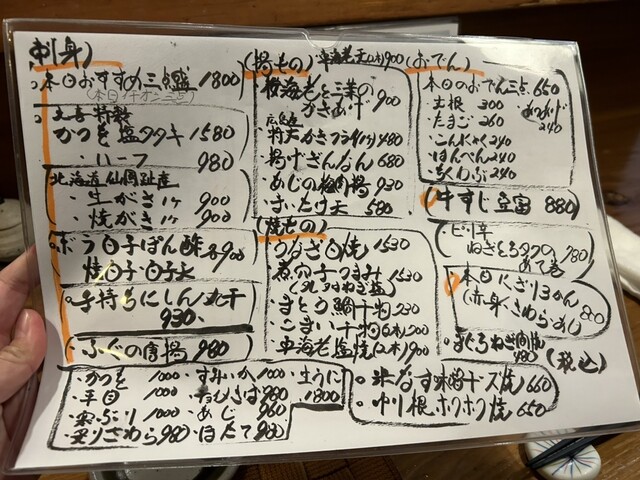 刺身)
本日おすすめ三点盛 1800
特製
かつを塩タタキ 1580
・ハーフ 980
北海道仙鳳趾産
・生がき1ヶ 900
・焼がき1ヶ 900
・タラ白子ぽん酢 900
焼白子・白子天
・子持ちにしん丸干
930.
ふぐの唐揚 980
(揚もの) 車海老天(2本)900
桜海老と三葉の
かきあげ 900
広島産
特大かきフライ(1ヶ)480
・揚げぎんなん 680
・あじの梅肉揚 930
・しいたけ天 580
(焼もの)
うなぎ白焼 1530
煮穴子つまみ 1530
・きとう鯛干物 930
・こまい干物(6本)700
・車海老塩焼(2本)900
(おでん)
本日のおでん三点 650
・大根 300
・たまご 260
・こんにゃく 240
・はんぺん 240
・ちくわぶ 240
・あつあげ 240
牛すじ豆富 880
ピリ辛
ねぎとろタクの
あて巻 780
本日にぎり3かん
(赤身、さわら、あじ) 880
480 (税込)
・米なす味噌チーズ焼 660
・ゆり根ホクホク焼 650
・かつを 1000
・平目 1000
・寒ぶり 1000
・炙りさわら 980
・すみいか 1000
・〆さば 980
・あじ 960
・ほたて 980
・生うに 1800